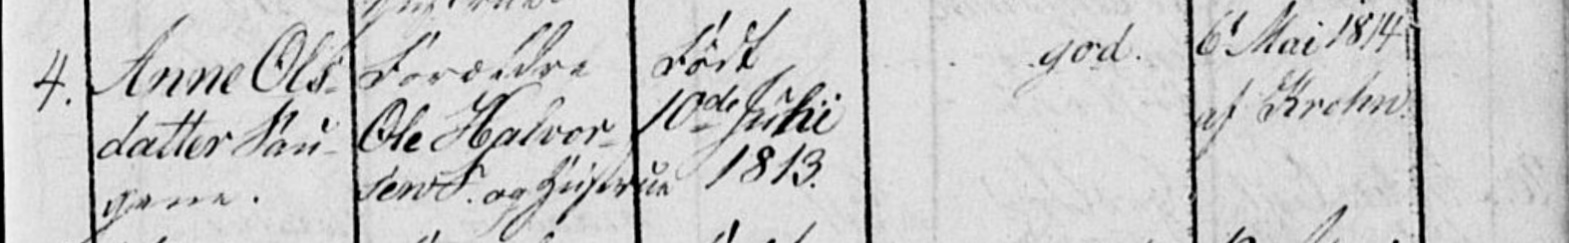 4.
Anne Ols-
datter Sau-
gene.
Forældre
Ole Halvor-
sen S. og Hustrue
Födt
10de Julii
1813.
god.
6t Mai 1814
af Krohn.